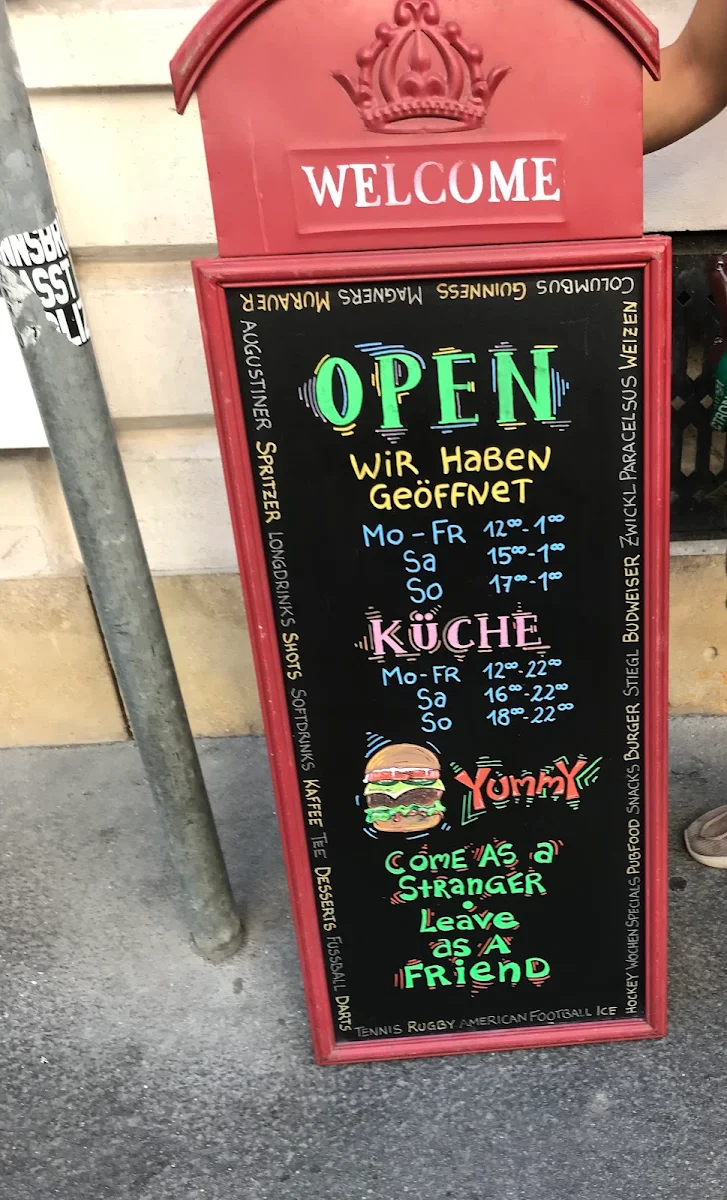 WELCOME
COLUMBUS GUINNESS MAGNERS MURAUER
AUGUSTINER SPRITZER LONGDRINKS SHOTS SOFTDRINKS KAFFEE TEE DESSERTS FUSSBALL DARTS
TENNIS RUGBY AMERICAN FOOTBALL ICE
HOCKEY WOCHENSPECIALS PUBFOOD SNACKS BURGER STIEGL BUDWEISER ZWICKL PARACELSUS WEIZEN
OPEN
WiR HaBEN
GEÖFFNET
Mo - FR 12⁰⁰-1⁰⁰
Sa 15⁰⁰-1⁰⁰
So 17⁰⁰-1⁰⁰
KÜCHE
Mo-FR 12⁰⁰-22⁰⁰
Sa 16⁰⁰-22⁰⁰
So 18⁰⁰-22⁰⁰
YUMMY
COME AS a
STRANGER
•
Leave
as A
FRienD